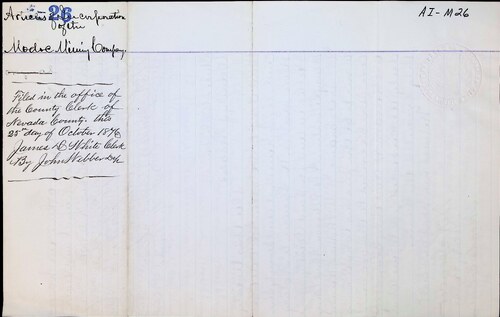 26
Articles of Incorporation
of the
Modoc Mining Company.
Filed in the office of
the County Clerk of
Nevada County. this
25th day of October 1876
James D. White Clerk
By John Webber Dep
AI-M26